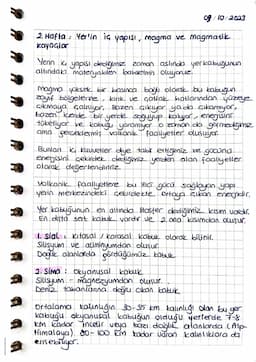 09.10.2023
2. Hafta : Yer'in iç yapısı, magma ve magmatik
kayaçlar
Yerin iç yapısı dediğimiz zaman aslında yerkabuğunun
altındaki materyalden bahsetmiş oluyoruz.
Magma yüksek bir basınca bağlı olarak bu kabuğun
zayıf bölgelerine, kırık ve çatlak hatlarından yüzeye
çıkmaya çalışıyor. Bazen çıkıyor ya da çıkamıyor,
bazen içinde bir yerde soğuyup kalıyor, enerjisini
tüketiyor ve kabuğu yaramıyor o zaman da görmediğimiz
ama derindeki volkanik faaliyetler oluşuyor.
Bunları iç kuvvetler diye tabir ettiğimiz ve gücünü
enerjisini çekirdek dediğimiz yerden alan faaliyetler
olarak değerlendiririz.
Volkanik faaliyetlere bu itici gücü sağlayan yapı
yerin merkezindeki çekirdekte ortaya çıkan enerjidir.
Yer kabuğunun en altında litosfer dediğimiz kısım vardır.
En altta sert kabuk vardır ve 2 ana kısımdan oluşur.
1. Sial : kıtasal / karasal kabuk olarak bilinir.
Silisyum ve alüminyumdan oluşur.
Dağlık alanlarda gördüğümüz kabuk
2. Sima : Okyanusal kabuk
Silisyum magnezyumdan oluşur.
Deniz tabanlarına doğru olan kabuk.
Ortalama kalınlığın 30-35 km kalınlığı olan bu yer
kabuğu okyanusal kabuğun olduğu yerlerde 7-8
km kadar incelir veya bazı dağlık alanlarda (Alp-
Himalaya) 80-100 km kadar varan kalınlıklara da
erişebiliyor.